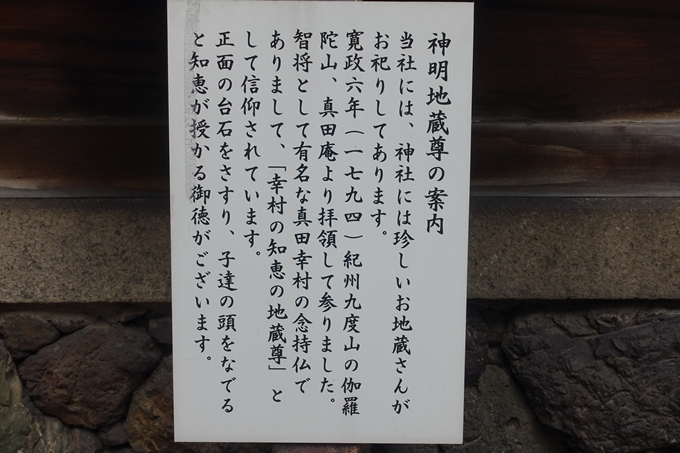 神明地蔵尊の案内
当社には、神社には珍しいお地蔵さんが
お祀りしてあります。
寛政六年（一七九四）紀州九度山の伽羅
陀山、真田庵より拝領して参りました。
智将として有名な真田幸村の念持仏で
ありまして、「幸村の知恵の地蔵尊」と
して信仰されています。
正面の台石をさすり、子達の頭をなでる
と知恵が授かる御徳がございます。